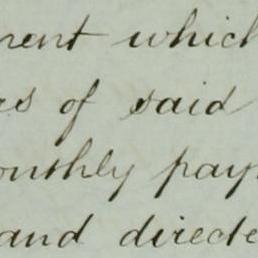 ment which
rs of said
onthly pay
and directe